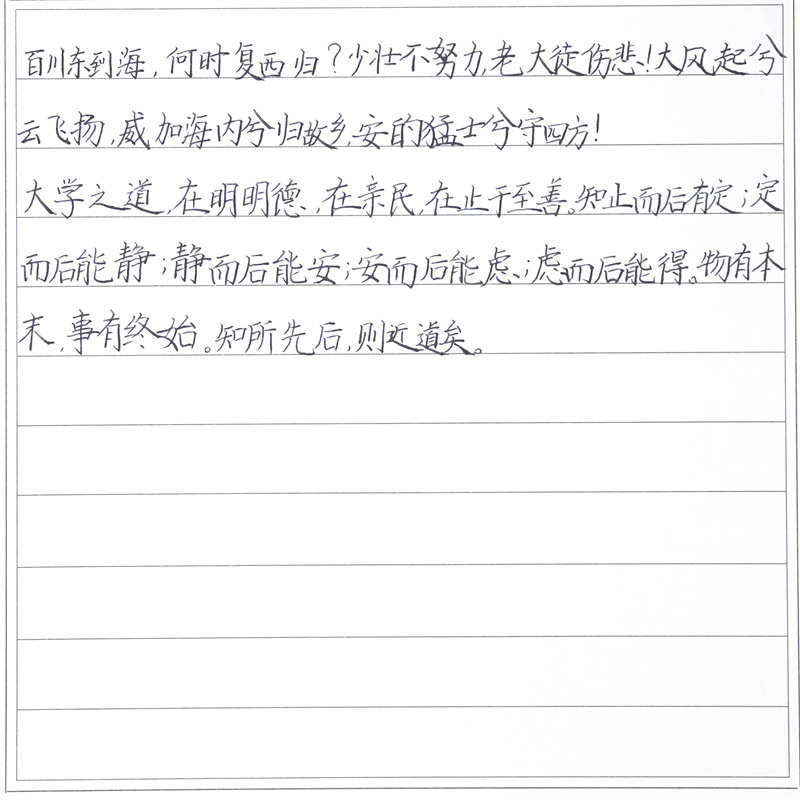 百川东到海，何时复西归？少壮不努力，老大徒伤悲！大风起兮
云飞扬，威加海内兮归故乡，安的猛士兮守四方！
大学之道，在明明德，在亲民，在止于至善。知止而后有定；定
而后能静；静而后能安；安而后能虑；虑而后能得。物有本
末，事有终始。知所先后，则近道矣。